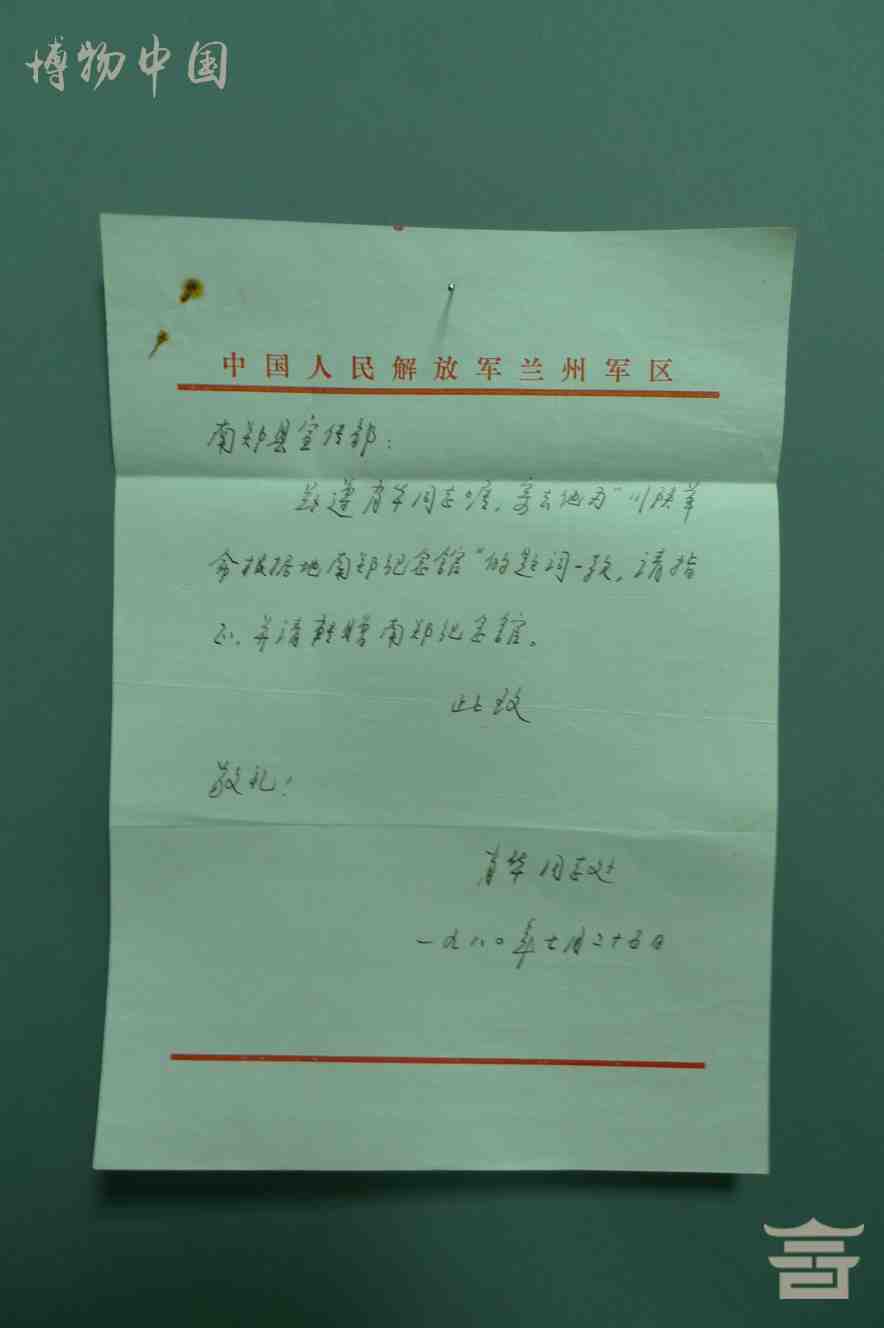 博物中国
中国人民解放军兰州军区
南郑县宣传部：
兹遵肖华同志嘱，寄去他为“川陕革
命根据地南郑纪念馆”的题词一款，请指
正，并请转赠南郑纪念馆。
此致
敬礼！
肖华同志处
一九八〇年七月二十五日